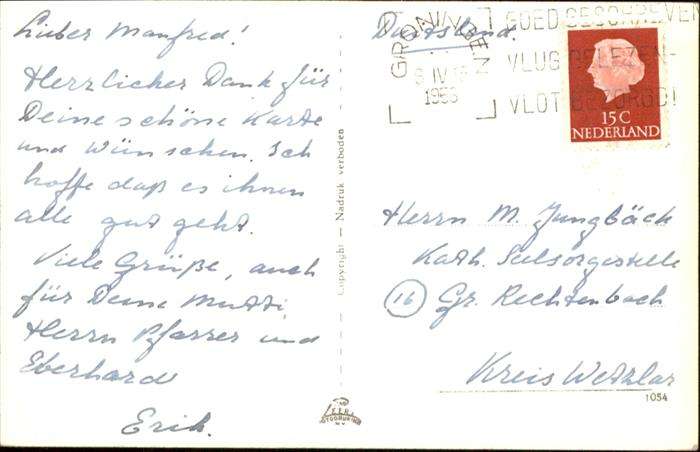 Lieber Manfred!
Herzlicher Dank für
Deine schöne Karte
und Wünschen. Ich
hoffe daß es ihnen
alle gut geht.
Viele Grüße, auch
für Deine Mutti,
Herrn Pfarrer und
Eberhard
Erich.
Copyright — Nadruk verboden
Duitsland.
GRONINGEN
IV
GOED GESCHREVEN
VLUG GELEZEN-
VLOT BEZORGD!
15 C
NEDERLAND
Herrn M. Jungbäck
Kath. Seelsorgestelle
(16) Gr. Rechtenbach
Kreis Wetzlar
1054